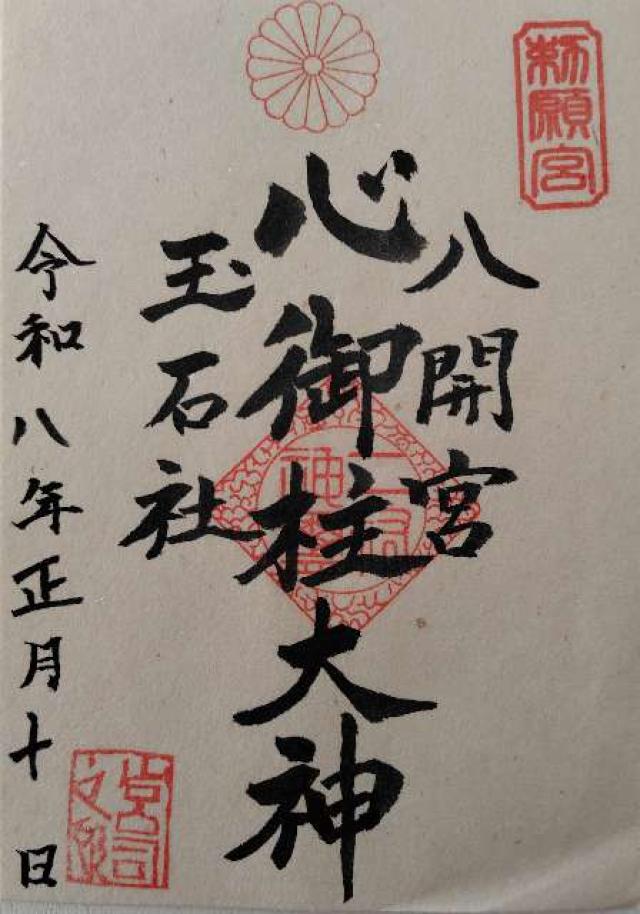 勅願宮
八開宮
心御柱大神
玉石社
令和八年正月十日
宮司之印